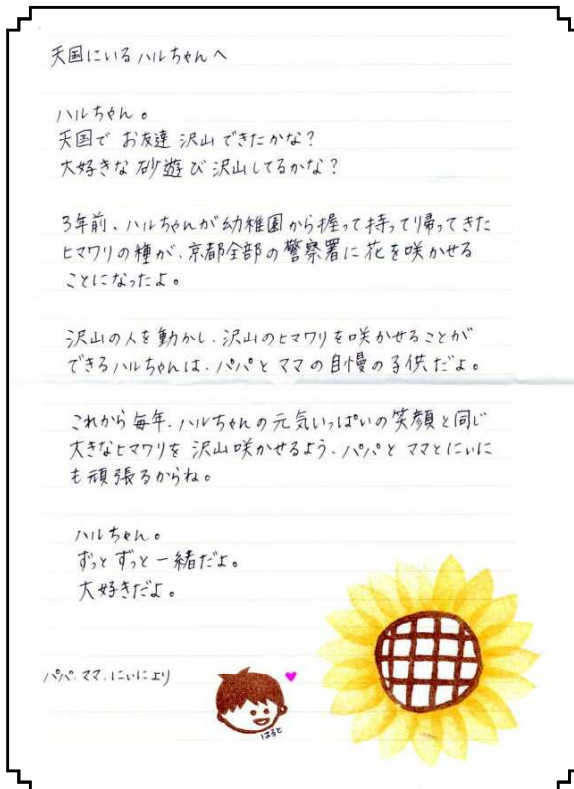 天国にいるハルちゃんへ
ハルちゃん。
天国で お友達 沢山 できたかな?
大好きな 砂遊び 沢山してるかな?
3年前、ハルちゃんが幼稚園から握って持って帰ってきた
ヒマワリの種が、京都全部の警察署に花を咲かせる
ことになったよ。
沢山の人を動かし、沢山のヒマワリを咲かせることが
できるハルちゃんは、パパとママの自慢の子供だよ。
これから毎年、ハルちゃんの元気いっぱいの笑顔と同じ
大きなヒマワリを 沢山咲かせるよう、パパとママとにぃに
も頑張るからね。
ハルちゃん。
ずっと ずっと 一緒だよ。
大好きだよ。
パパ、ママ、にぃにより
はると